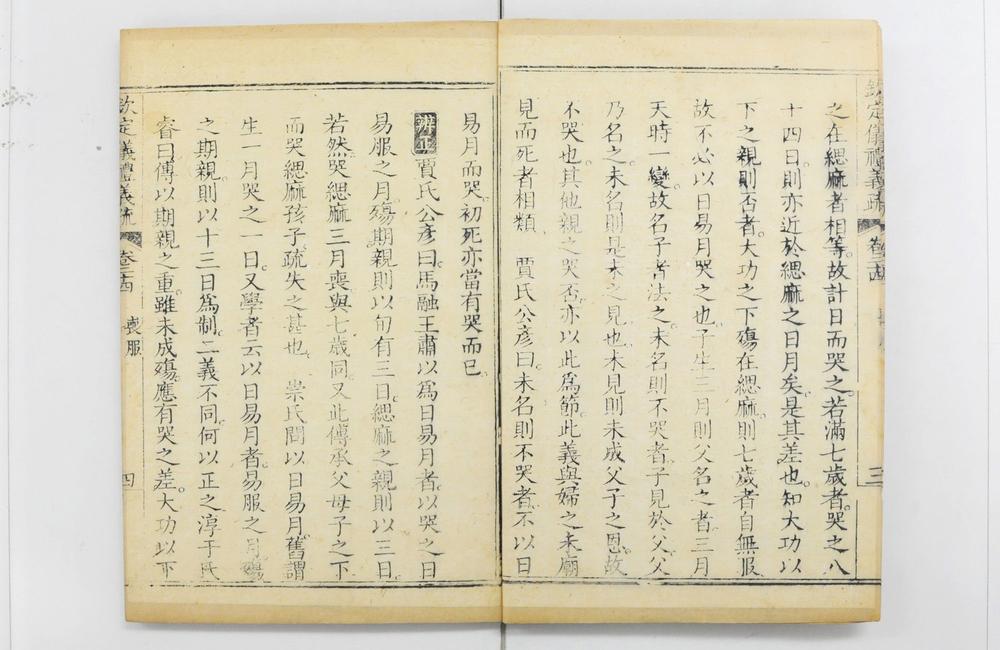 欽定儀禮義疏 卷二十四
之在緦麻者相等故計日而哭之若滿七歲者哭之八
十四日則亦近於緦麻之日月矣是其差也知大功以
下之親則否者大功之下殤在緦麻則七歲者自無服
故不必以日易月哭之也子生三月則父名之者三月
天時一變故名子者法之未名則不哭者子見於父父
乃名之未名則是未之見也未見則未成父子之恩故
不哭也其他親之哭否亦以此爲節此義與婦之未廟
見而死者相類 賈氏公彥曰未名則不哭者不以日
易月而哭初死亦當有哭而已
辨正賈氏公彥曰馬融王肅以爲日易月者以哭之日
易服之月殤期親則以旬有三日緦麻之親則以三日
若然哭緦麻三月喪與七歲同又此傳承父母子之下
而哭緦麻孩子疏失之甚也 崇氏問以日易月舊謂
生一月哭之一日又學者云以日易月者易服之月殤
之期親則以十三日爲制二義不同何以正之淳于氏
睿曰傳以期親之重雖未成殤應有哭之差大功以下
欽定儀禮義疏 卷二十四 喪服 四